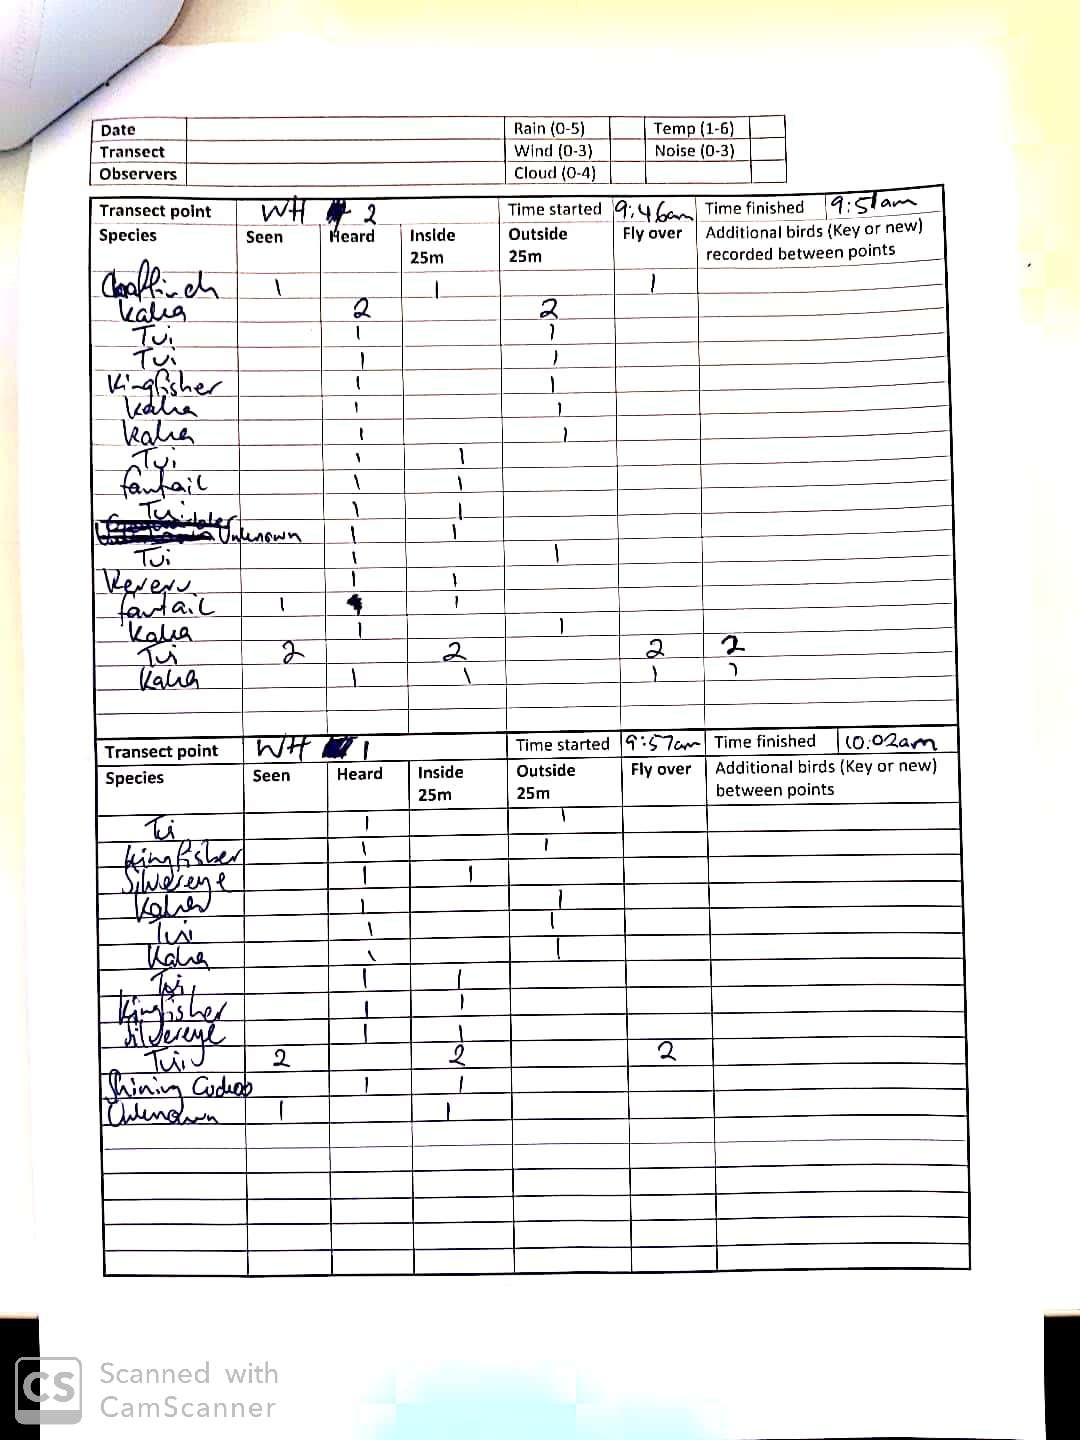 Date Rain (0-5) Temp (1-6)
Transect Wind (0-3) Noise (0-3)
Observers Cloud (0-4)
Transect point WH 2 Time started 9:46am Time finished 9:51am
Species Seen Heard Inside 25m Outside 25m Fly over Additional birds (Key or new) recorded between points
Chaffinch 1 1 1
Kaka 2 2
Tui 1 1
Tui 1 1
Kingfisher 1 1
Kaka 1 1
Kaka 1 1
Tui 1 1
fantail 1 1
Tui 1 1
Unknown 1 1
Tui 1 1
Kereru 1 1
fantail 1 1
Kaka 1 1
Tui 2 2 2 2
Kaka 1 1 1 1
Transect point WH 1 Time started 9:57am Time finished 10.02am
Species Seen Heard Inside 25m Outside 25m Fly over Additional birds (Key or new) between points
Tui 1 1
Kingfisher 1 1
Silvereye 1 1
Kaka 1 1
Tui 1 1
Kaka 1 1
Tui 1 1
Kingfisher 1 1
Silvereye 1 1
Tui 2 2 2
Shining Cuckoo 1 1
Unknown 1 1
CS Scanned with
CamScanner